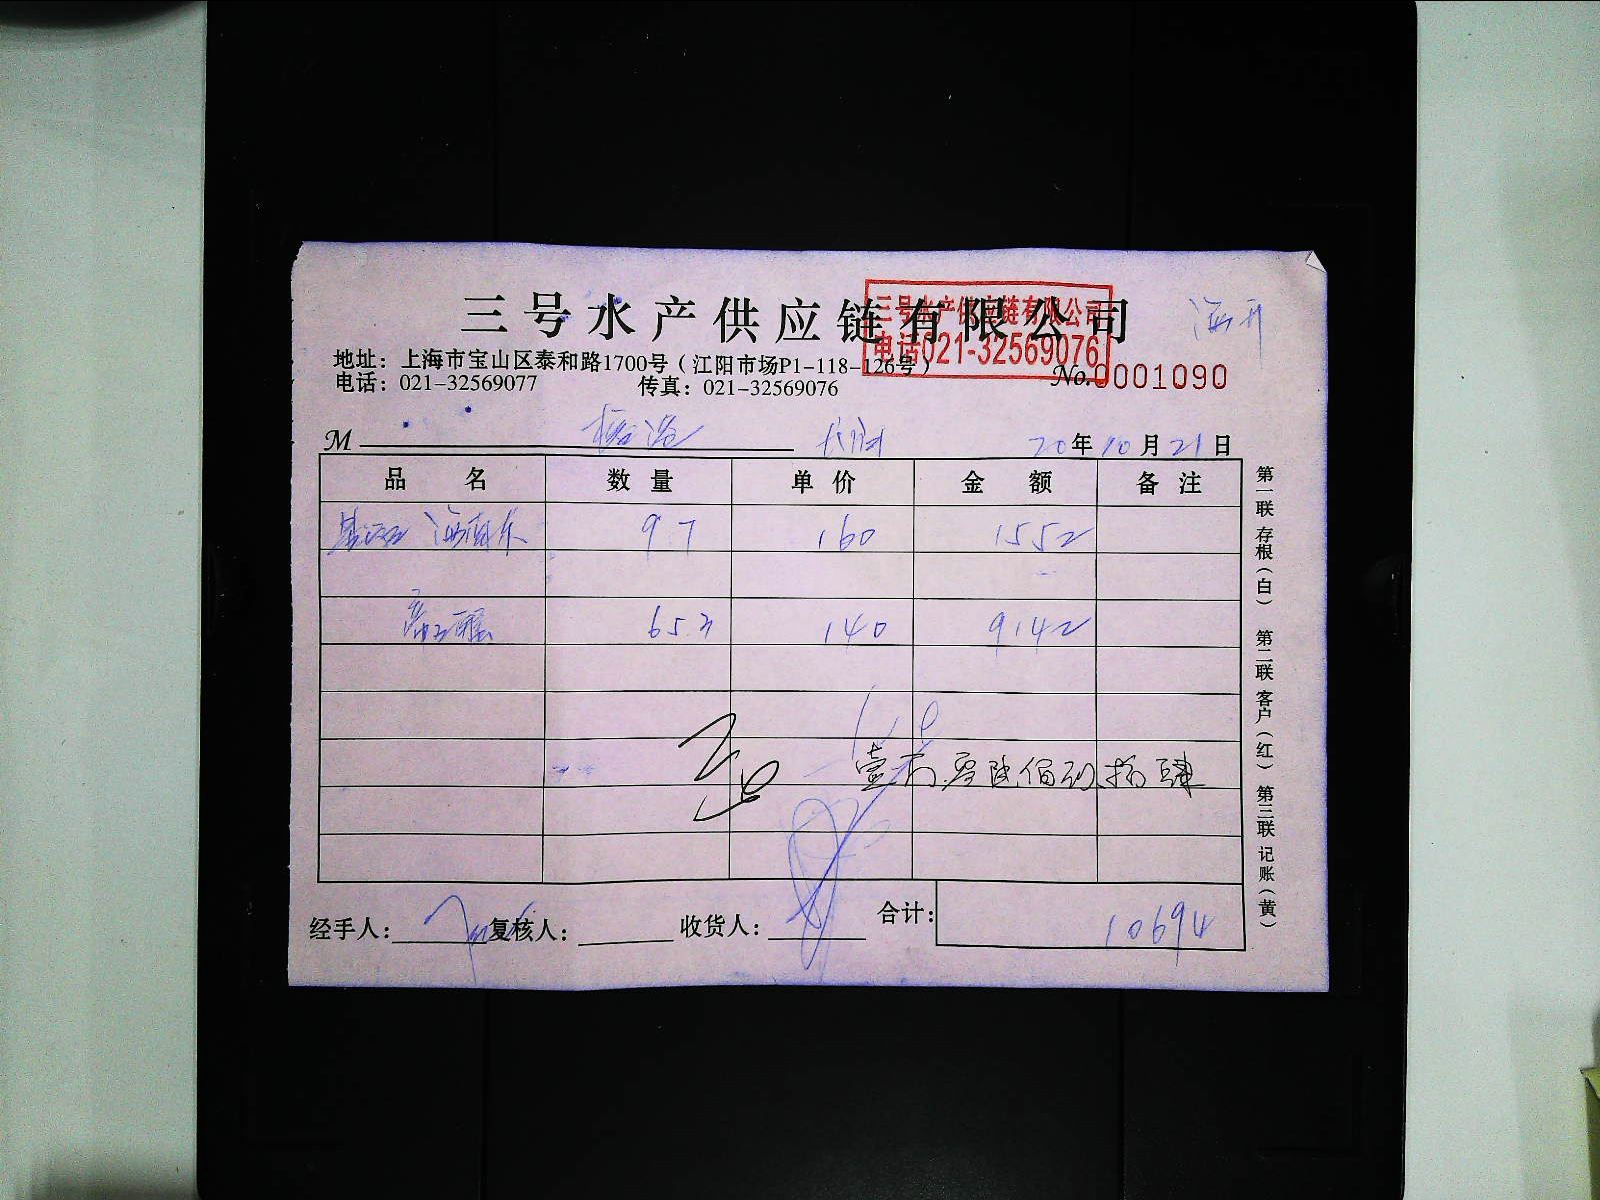 三号水产供应链有限公司
三号水产供应链有限公司
电话021-32569076
地址：上海市宝山区泰和路1700号（江阳市场P1-118-126号）
电话：021-32569077 传真：021-32569076
No.0001090
M
20年10月21日
品名 数量 单价 金额 备注
9.7 160 1552
65.3 140 9142
壹万零陆佰玖拾肆
合计：10694
经手人： 复核人： 收货人：
第一联 存根（白） 第二联 客户（红） 第三联 记账（黄）